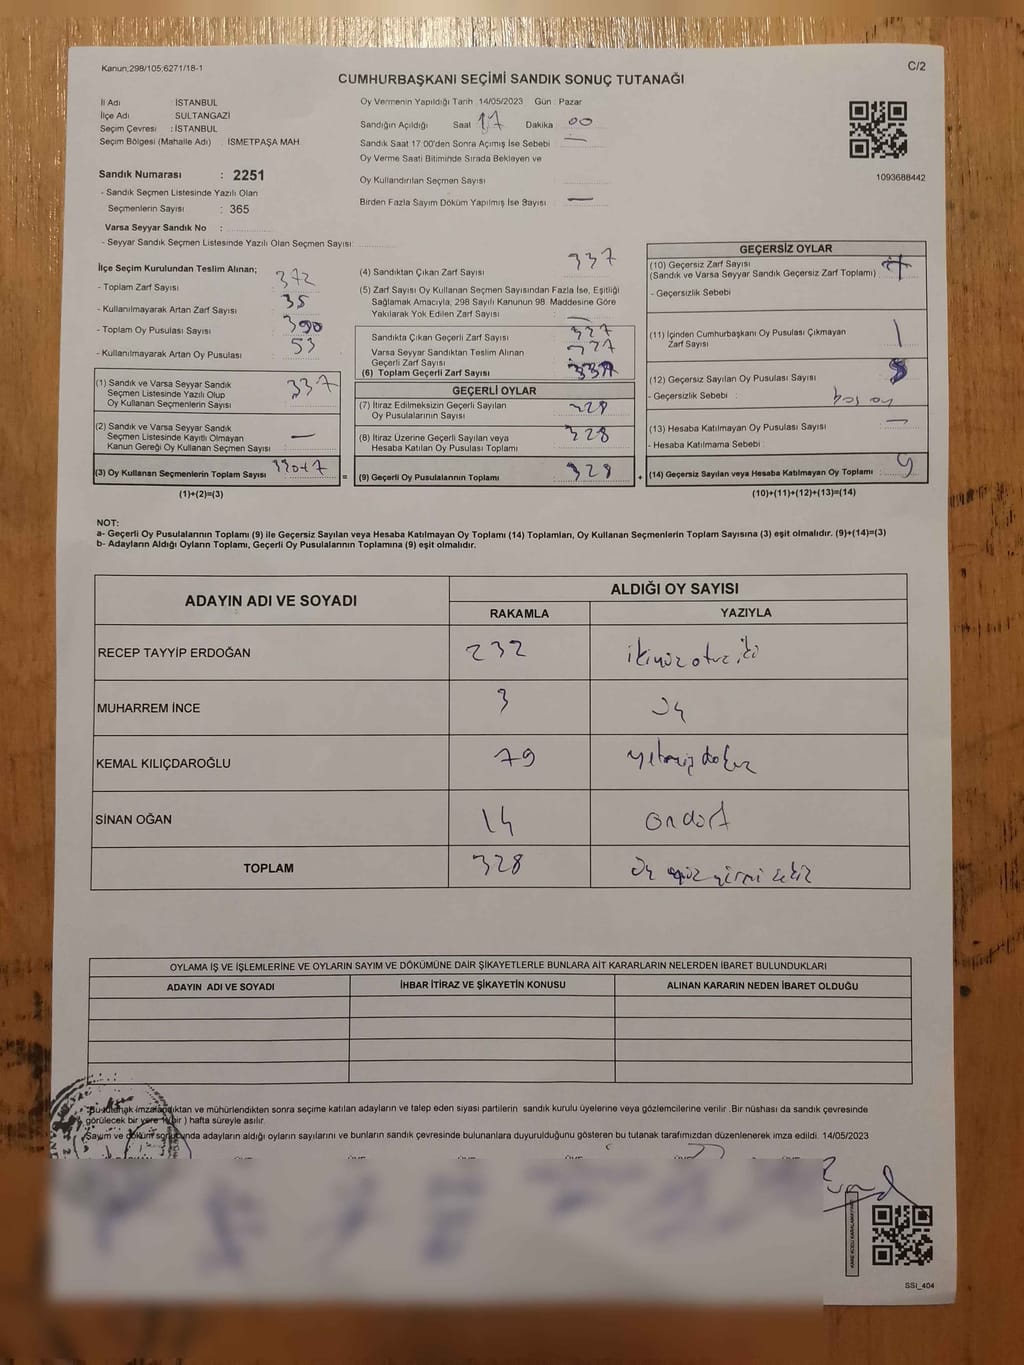 Kanun,298/105;6271/18-1
C/2
CUMHURBAŞKANI SEÇİMİ SANDIK SONUÇ TUTANAĞI
İl Adı İSTANBUL
İlçe Adı SULTANGAZİ
Seçim Çevresi : İSTANBUL
Seçim Bölgesi (Mahalle Adı) : İSMETPAŞA MAH.
Sandık Numarası : 2251
- Sandık Seçmen Listesinde Yazılı Olan
Seçmenlerin Sayısı : 365
Varsa Seyyar Sandık No :
- Seyyar Sandık Seçmen Listesinde Yazılı Olan Seçmen Sayısı:
Oy Vermenin Yapıldığı Tarih : 14/05/2023 Gün : Pazar
Sandığın Açıldığı Saat 17 Dakika 00
Sandık Saat 17:00'den Sonra Açımış İse Sebebi —
Oy Verme Saati Bitiminde Sırada Bekleyen ve
Oy Kullandırılan Seçmen Sayısı
Birden Fazla Sayım Döküm Yapılmış İse Sayısı —
1093688442
İlçe Seçim Kurulundan Teslim Alınan;
- Toplam Zarf Sayısı 372
- Kullanılmayarak Artan Zarf Sayısı 35
- Toplam Oy Pusulası Sayısı 390
- Kullanılmayarak Artan Oy Pusulası 53
(1) Sandık ve Varsa Seyyar Sandık
Seçmen Listesinde Yazılı Olup 337
Oy Kullanan Seçmenlerin Sayısı
(2) Sandık ve Varsa Seyyar Sandık
Seçmen Listesinde Kayıtlı Olmayan —
Kanun Gereği Oy Kullanan Seçmen Sayısı
(3) Oy Kullanan Seçmenlerin Toplam Sayısı
(1)+(2)=(3)
(4) Sandıktan Çıkan Zarf Sayısı 337
(5) Zarf Sayısı Oy Kullanan Seçmen Sayısından Fazla İse, Eşitliği
Sağlamak Amacıyla; 298 Sayılı Kanunun 98. Maddesine Göre
Yakılarak Yok Edilen Zarf Sayısı —
Sandıkta Çıkan Geçerli Zarf Sayısı
Varsa Seyyar Sandıktan Teslim Alınan
Geçerli Zarf Sayısı
(6) Toplam Geçerli Zarf Sayısı 337
GEÇERLİ OYLAR
(7) İtiraz Edilmeksizin Geçerli Sayılan
Oy Pusulalarının Sayısı 328
(8) İtiraz Üzerine Geçerli Sayılan veya
Hesaba Katılan Oy Pusulası Toplamı 328
= (9) Geçerli Oy Pusulalarının Toplamı 328 +
GEÇERSİZ OYLAR
(10) Geçersiz Zarf Sayısı
(Sandık ve Varsa Seyyar Sandık Geçersiz Zarf Toplamı)
- Geçersizlik Sebebi
(11) İçinden Cumhurbaşkanı Oy Pusulası Çıkmayan
Zarf Sayısı 1
(12) Geçersiz Sayılan Oy Pusulası Sayısı 8
- Geçersizlik Sebebi :
(13) Hesaba Katılmayan Oy Pusulası Sayısı —
- Hesaba Katılmama Sebebi :
(14) Geçersiz Sayılan veya Hesaba Katılmayan Oy Toplamı 9
(10)+(11)+(12)+(13)=(14)
NOT:
a- Geçerli Oy Pusulalarının Toplamı (9) ile Geçersiz Sayılan veya Hesaba Katılmayan Oy Toplamı (14) Toplamları, Oy Kullanan Seçmenlerin Toplam Sayısına (3) eşit olmalıdır. (9)+(14)=(3)
b- Adayların Aldığı Oyların Toplamı, Geçerli Oy Pusulalarının Toplamına (9) eşit olmalıdır.
ADAYIN ADI VE SOYADI
ALDIĞI OY SAYISI
RAKAMLA YAZIYLA
RECEP TAYYİP ERDOĞAN 232 ikiyüzotuziki
MUHARREM İNCE 3 Üç
KEMAL KILIÇDAROĞLU 79 yetmiş dokuz
SİNAN OĞAN 14 ondört
TOPLAM 328 Üç yüz yirmi sekiz
OYLAMA İŞ VE İŞLEMLERİNE VE OYLARIN SAYIM VE DÖKÜMÜNE DAİR ŞİKAYETLERLE BUNLARA AİT KARARLARIN NELERDEN İBARET BULUNDUKLARI
ADAYIN ADI VE SOYADI İHBAR İTİRAZ VE ŞİKAYETİN KONUSU ALINAN KARARIN NEDEN İBARET OLDUĞU
Bu tutanak imzalandıktan ve mühürlendikten sonra seçime katılan adayların ve talep eden siyasi partilerin sandık kurulu üyelerine veya gözlemcilerine verilir. Bir nüshası da sandık çevresinde
görülecek bir yere 1 (bir) hafta süreyle asılır.
Sayım ve döküm sonucunda adayların aldığı oyların sayılarını ve bunların sandık çevresinde bulunanlara duyurulduğunu gösteren bu tutanak tarafımızdan düzenlenerek imza edildi. 14/05/2023
KARE KODU KARALAMAYINIZ
SSI_404